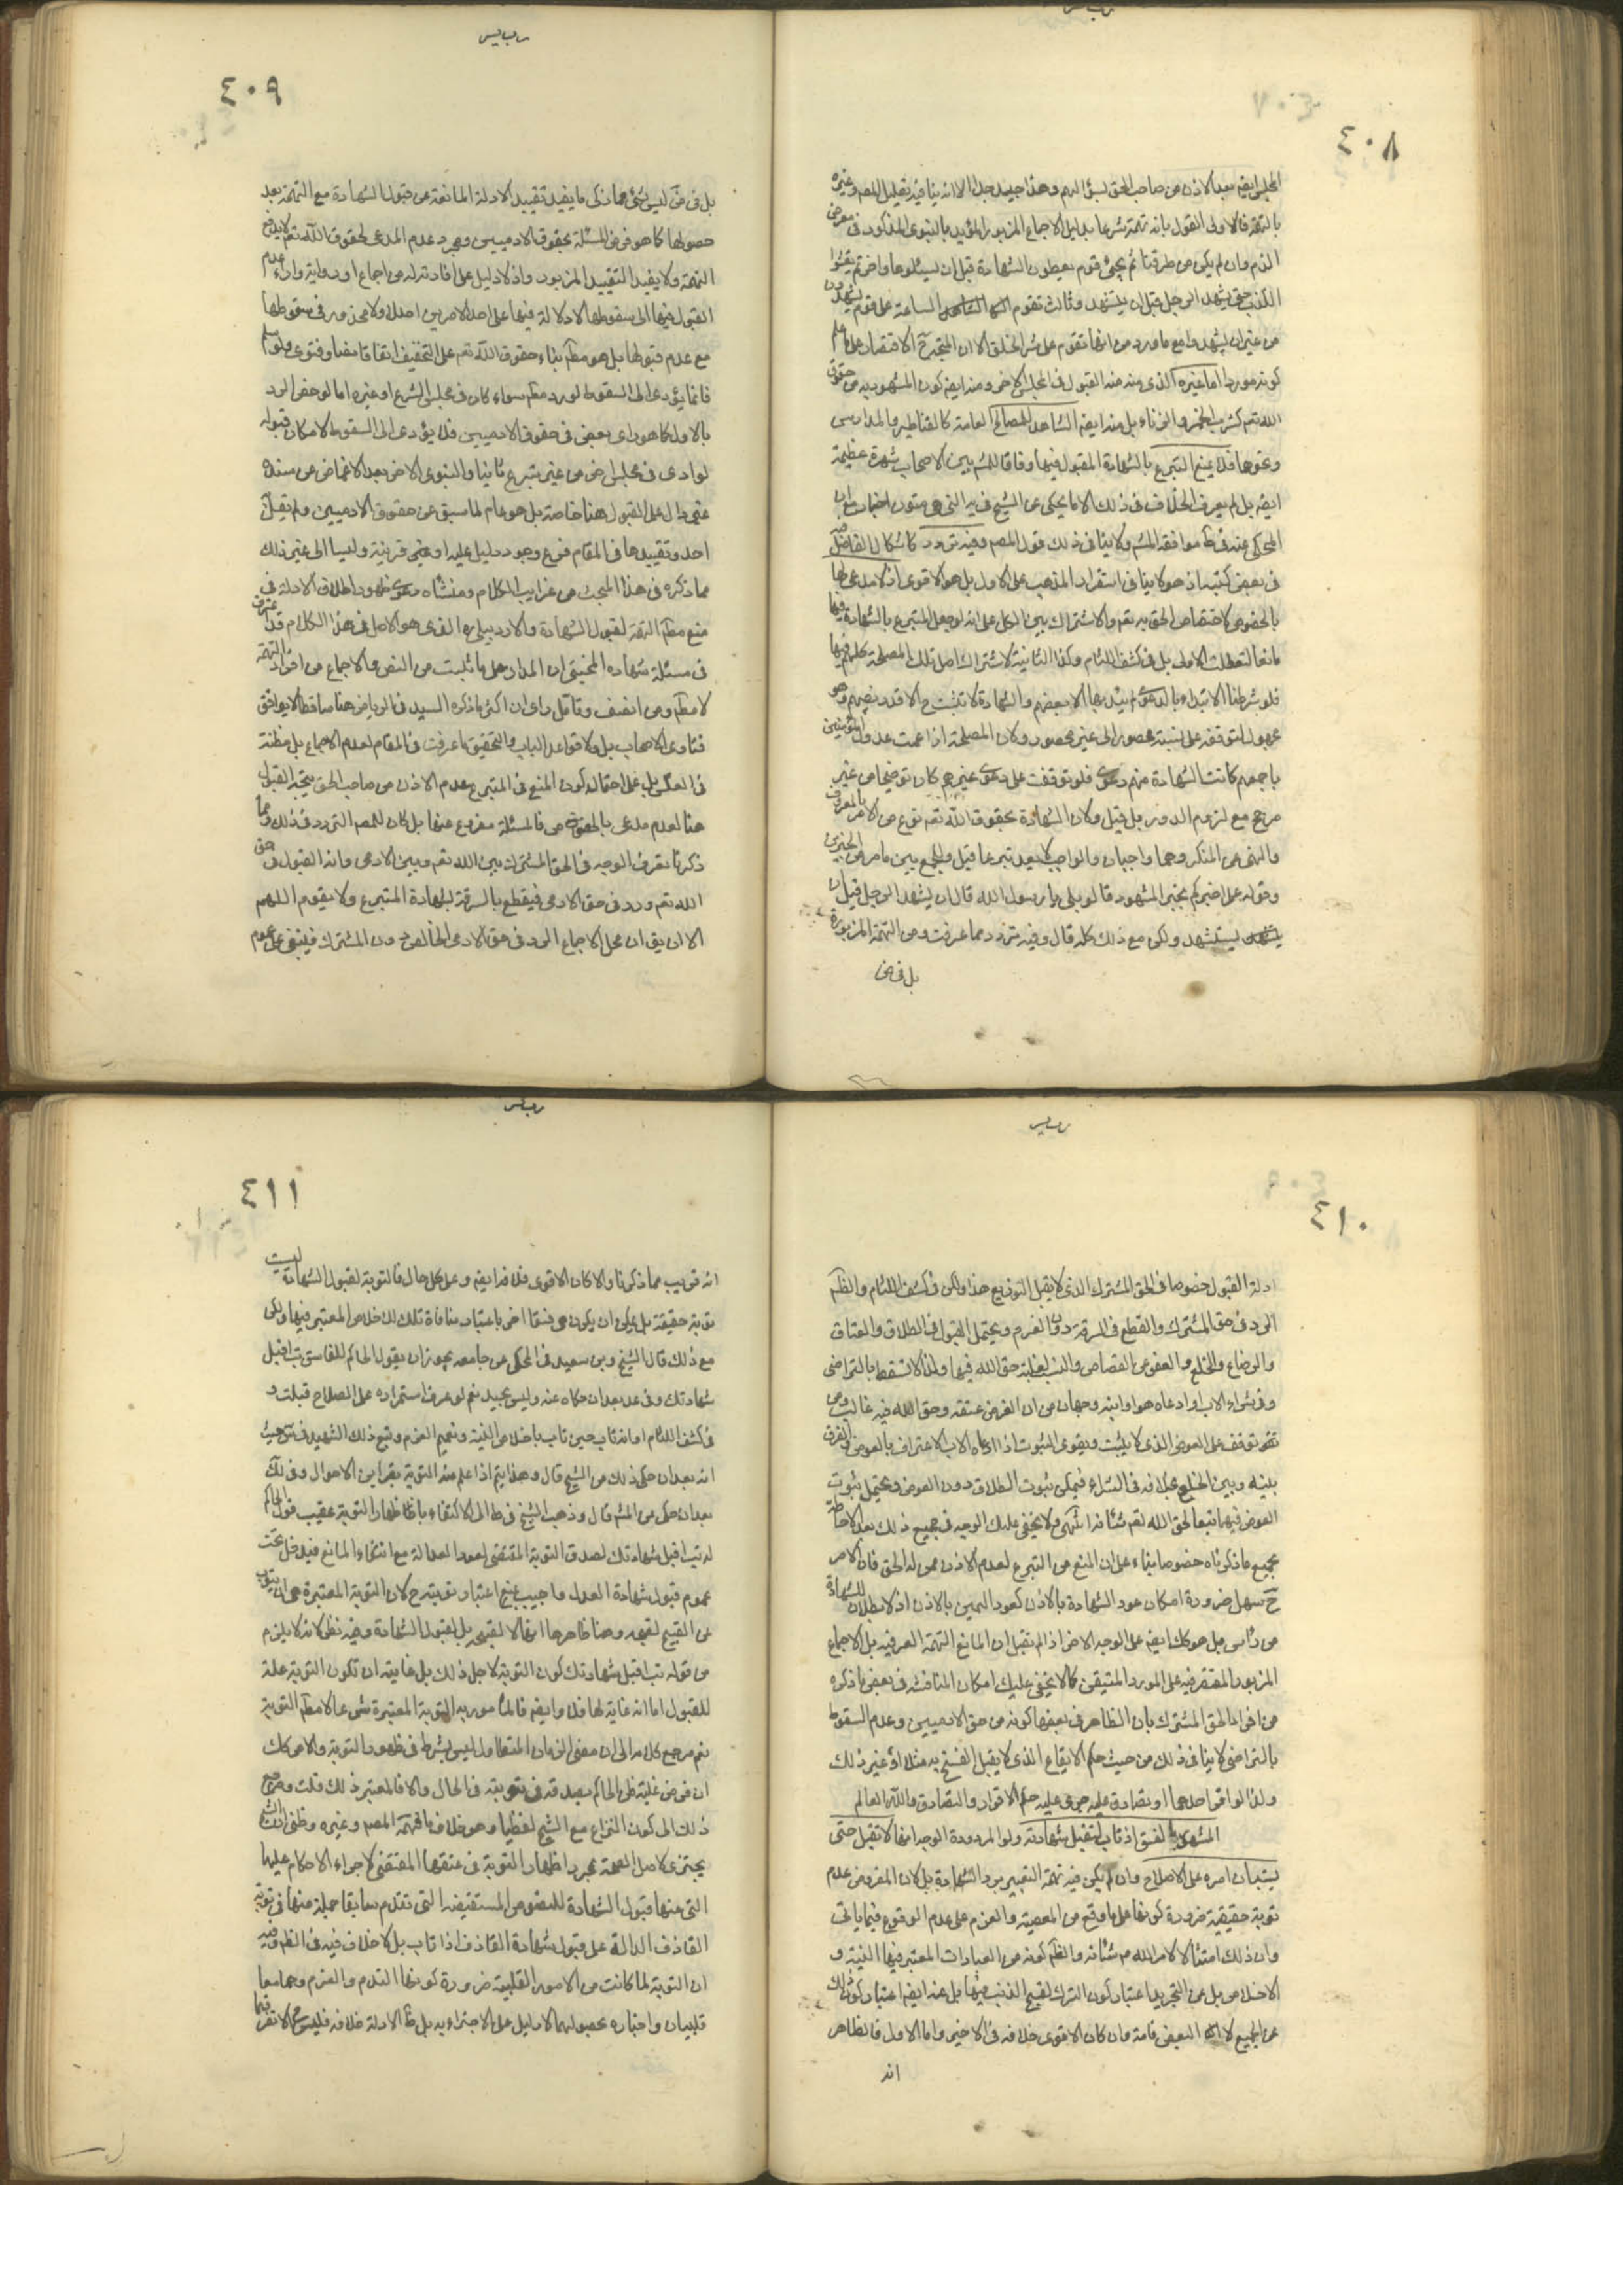 ٤٠٨
المجلس ايضا بعد الاذن من صاحب الحق لسؤالهم وهذا جيد جدا الا انه ينافيه تعليل المصم وغيره
بالتهمة فالاولى القول بانه تهمة شرعا بدليل الاجماع المزبور المؤيد بالنبوى المذكور في معرض
الذم وان لم يكن من طرقنا ثم يجئ قوم يعطون الشهادة قبل ان يسئلوها واخر ثم يفشوا
الكذب حتى يشهد الرجل قبل ان يستشهد وثالث تقوم الساعة على قوم يشهدون
من غير ان يستشهدوا مع ما ورد من انها تقوم على شر الخلق الا ان المتجه ح الاقتصار على ما علم
كونه موردا اما غيره الذى منه القبول في المجلس الاخر ومنه ايضا كون المشهود به من حقوق
الله تعم كشرب الخمر والزناء بل منه ايضا الشاهد للمصالح العامة كالقناطر والمدارس
ونحوها فلا يمنع التبرع بالشهادة المقبول فيها وفاقا للمش بين الاصحاب شهرة عظيمة
ايضا بل لم يعرف الخلاف في ذلك الا ما يحكى عن الشيخ في يه التي هي متون اخبار مع ان
المحكى عنه في ط موافقة المش ولا ينافى ذلك قول المصم وفيه تردد كاشكال الفاضل
في بعض كتبه اذ هو لا ينافى استقرار المذهب على الاول بل هو الاقوى اذ لا مدعى لها
بالخصوص لاختصاص الحق به تعم والاشتراك بين الكل على انه لو جعل المتبرع بالشهادة فيها
مانعا لتعطلت الاولى بل في كشف اللثام وكذا الثانية لاشتراك اصل تلك المصلحة كلهم فيها
فلو شرطنا الابتداء بالدعوى لم يبتدء بها الا بعضهم والشهادة لا تثبت ح الا قدر نصيبهم وهو
مجهول لتوقفه على نسبة محصور الى غير محصور ولان المصلحة اذا عمت عدول المؤمنين
باجمعهم كانت الشهادة منهم دعوى فلو توقفت على دعوى غيرهم كان ترجيحا من غير
مرجح مع لزوم الدور بل قيل ولان الشهادة بحقوق الله تعم نوع من الامر بالمعروف
والنهى عن المنكر وهما واجبان والواجب لا يعد تبرعا قيل وللجمع بين ما مر من الخبرين
وقوله على اخبركم بخير المشهود قالوا بلى يا رسول الله قال ان يشهد الرجل قبل ان
يستشهد ولكن مع ذلك كله قال وفيه تردد مما عرفت ومن التهمة المزبورة
بل في ض
٤٠٩
بل في ض ليس شئ مما ذكر ما يفيد تقييد الادلة المانعة عن قبول الشهادة مع التهمة بعد
حصولها كما هو فرض المسئلة بحقوق الادميين ومجرد عدم المدعى لحقوق الله تعم لا يدفع
التهمة ولا يفيد التقييد المزبور واذ لا دليل على افادته له من اجماع او رواية واداء عدم
القبول فيها الى سقوطها لا دلالة فيها على احد الامرين اصلا ولا محذور في سقوطها
مع عدم قبولها بل هو مطم بناء حقوق الله تعم على التخفيف اتفاقا نصا وفتوى ولو سلم
فانما يؤدى الى السقوط لو رد مطم سواء كان في مجلس الشرع او غيره اما لو خص الرد
بالاول كما هو راى بعض في حقوق الادميين فلا يؤدى الى السقوط لامكان قبوله
لو ادى في مجلس اخر من غير تبرع ثانيا والنبوى الاخر بعد الاغماض عن سنده
غير دال على القبول هنا خاصة بل هو عام لما سبق من حقوق الادميين ولم يقل به
احد وتقييدها في المقام فرع وجود دليل عليه او حتى قرينة وليسا الى غير ذلك
مما ذكره في هذا المبحث من غرايب الكلام ومنشاه دعوى ظهور اطلاق الادلة في
منع مطم التهمة لقبول الشهادة والاردبيلى ره الذى هو الاصل في هذا الكلام قد اعترف
في مسئلة شهادة المختبى ان المدار على ما ثبت من النص والاجماع من افراد التهمة
لا مطم ومن انصف وتامل راى ان اكثر ما ذكره السيد في الرياض هنا ساقط لا يوافق
فتاوى الاصحاب بل ولا قواعد الباب والتحقيق ما عرفت في المقام لعدم الاجماع بل مظنة
في العكس بل على احتمال كون المنع في المتبرع لعدم الاذن من صاحب الحق يتجه القبول
هنا لعدم مدعى بالخصوص فالمسئلة مفروغ عنها بل كان للمصم التردد في ذلك ومما
ذكرنا يعرف الوجه في الحق المشترك بين الله تعم وبين الادمى وانه القبول في حق
الله تعم ورد في حق الادمى فيقطع بالسرقة بشهادة المتبرع ولا يقوم اللهم
الا ان يق ان محل الاجماع الرد في حق الادمى الخالص دون المشترك فليبقى على عموم
٤١٠
ادلة القبول خصوصا في الحق المشترك الذى لا يقبل التوزيع هذا ولكن في كشف اللثام والظم
الرد في حق المشترك والقطع في السرقة دون الغرم ويحتمل القبول في الطلاق والعتاق
والرضاع والخلع والعفو عن القصاص والنسب لغلبة حق الله فيها ولذا لا تسقط بالتراضى
وفي شراء الاب او ادعاه هو او ابنه وجهان من ان الغرض عتقه وحق الله فيه غالب ومن
تقو توقفه على العوض الذى لا يثبت ويقوى الثبوت اذا ادعاه الاب لاعترافه بالعوض والفرق
بينه وبين الخلع بخلافه في الشراء فيمكن ثبوت الطلاق دون العوض ويحتمل ثبوت
العوض فيهما تبعا لحق الله تعم شانه انتهى ولا يخفى عليك الوجه في جميع ذلك بعد الاحاطة
بجميع ما ذكرناه خصوصا بناء على ان المنع من التبرع لعدم الاذن ممن له الحق فان الامر
ح سهل ضرورة امكان عود الشهادة بالاذن كعود اليمين بالاذن اذ لا بطلان للشهادة
من راس بل هو كك ايضا على الوجه الاخر اذا لم نقل ان المانع التهمة العرفية بل الاجماع
المزبور المقتصر فيه على المورد المتيقن كما لا يخفى عليك امكان المناقشة في بعض ما ذكره
من افراد الحق المشترك بان الظاهر في بعضها كونه من حق الادميين وعدم السقوط
بالتراضى لا ينافى ذلك من حيث حكم الايقاع الذى لا يقبل الفسخ به مثلا او غير ذلك
ولذا لو اقر احدهما او تصادق عليه جرى عليه حكم الاقرار والتصادق والله العالم
المشهور بالفسق اذا تاب لتقبل شهادته ولو المردودة الوجه انها لا تقبل حتى
يستبان امره على الاصلاح وان لم يكن فيه تهمة التعيير برد الشهادة بل لان المفروض عدم
توبة حقيقية ضرورة كونها على ما وقع من المعصية والعزم على عدم الوقوع فيما ياتى
وان ذلك امتثالا لامر الله عم شانه والظم كونه من العبادات المعتبر فيها النية و
الاخلاص بل عن التجريد اعتبار كون الترك لقبح الذنب فيها بل عنه ايضا اعتبار كون ذلك
عن الجميع لا البعض قامة وان كان الاقوى خلافه في الاخير واما الاول فالظاهر
انه
٤١١
انه قريب مما ذكرنا والا كان الاقوى خلافه ايضا وعلى كل حال فالتوبة لقبول الشهادة ليست
توبة حقيقة بل يمكن ان يكون هي فسقا اخر باعتبار منافاة تلك للاخلاص المعتبر فيها ولكن
مع ذلك قال الشيخ وبن سعيد في المحكى عن جامعه يجوز ان يقول الحاكم للفاسق تب اقبل
شهادتك وفي عد بعد ان حكاه عنه وليس بجيد نعم لو عرف استمراره على الصلاح قبلت و
في كشف اللثام او انه تاب حين تاب باخلاص النية وتصميم العزم وتبع ذلك الشهيد في س حيث
انه بعد ان حكى ذلك عن الشيخ قال وهذا يتم اذا علم منه التوبة بقراين الاحوال وفي لك
بعد ان حكى عن المش قال وذهب الشيخ في ط الى الاكتفاء باظهار التوبة عقيب قول الحاكم
له تب اقبل شهادتك لصدق التوبة المقتضى لعود العدالة مع انتفاء المانع فيدخل تحت
عموم قبول شهادة العدل واجيب بمنع اعتبار توبته ح لان التوبة المعتبرة هي ان يتوب
عن القبيح لقبحه وهنا ظاهرها انها لا لقبحه بل لقبول الشهادة وفيه نظر لانه لا يلزم
من قوله تب اقبل شهادتك كون التوبة لاجل ذلك بل غايته ان تكون التوبة علة
للقبول اما انه غاية لها فلا وايضا فالمامور به التوبة المعتبرة شرعا لا مطم التوبة
نعم مرجع كلامه الى ان مضى الزمان المتطاول ليس بشرط في ظهور التوبة والامر كك
ان فرض غلبة ظن الحاكم بصدقه في توبته في الحال والا فالمعتبر ذلك قلت ومرجع
ذلك الى كون النزاع مع الشيخ لفظيا وهو خلاف ما فهمه المصم وغيره وظنى ان الشيخ
يجتزى لاصل الصحة بمجرد اظهار التوبة في تحققها المقتضى لاجراء الاحكام عليها
التي منها قبول الشهادة للنصوص المستفيضة التي تقدم سابقا جملة منها في توبة
القاذف الدالة على قبول شهادة القاذف اذا تاب بل لا خلاف فيه في الظم وفيه
ان التوبة لما كانت من الامور القلبية ضرورة كونها الندم والعزم وهما معا
قلبيان واخباره بحصولهما لا دليل على الاجتزاء به بل ظ الادلة خلافه فليس ح الا تعرفها